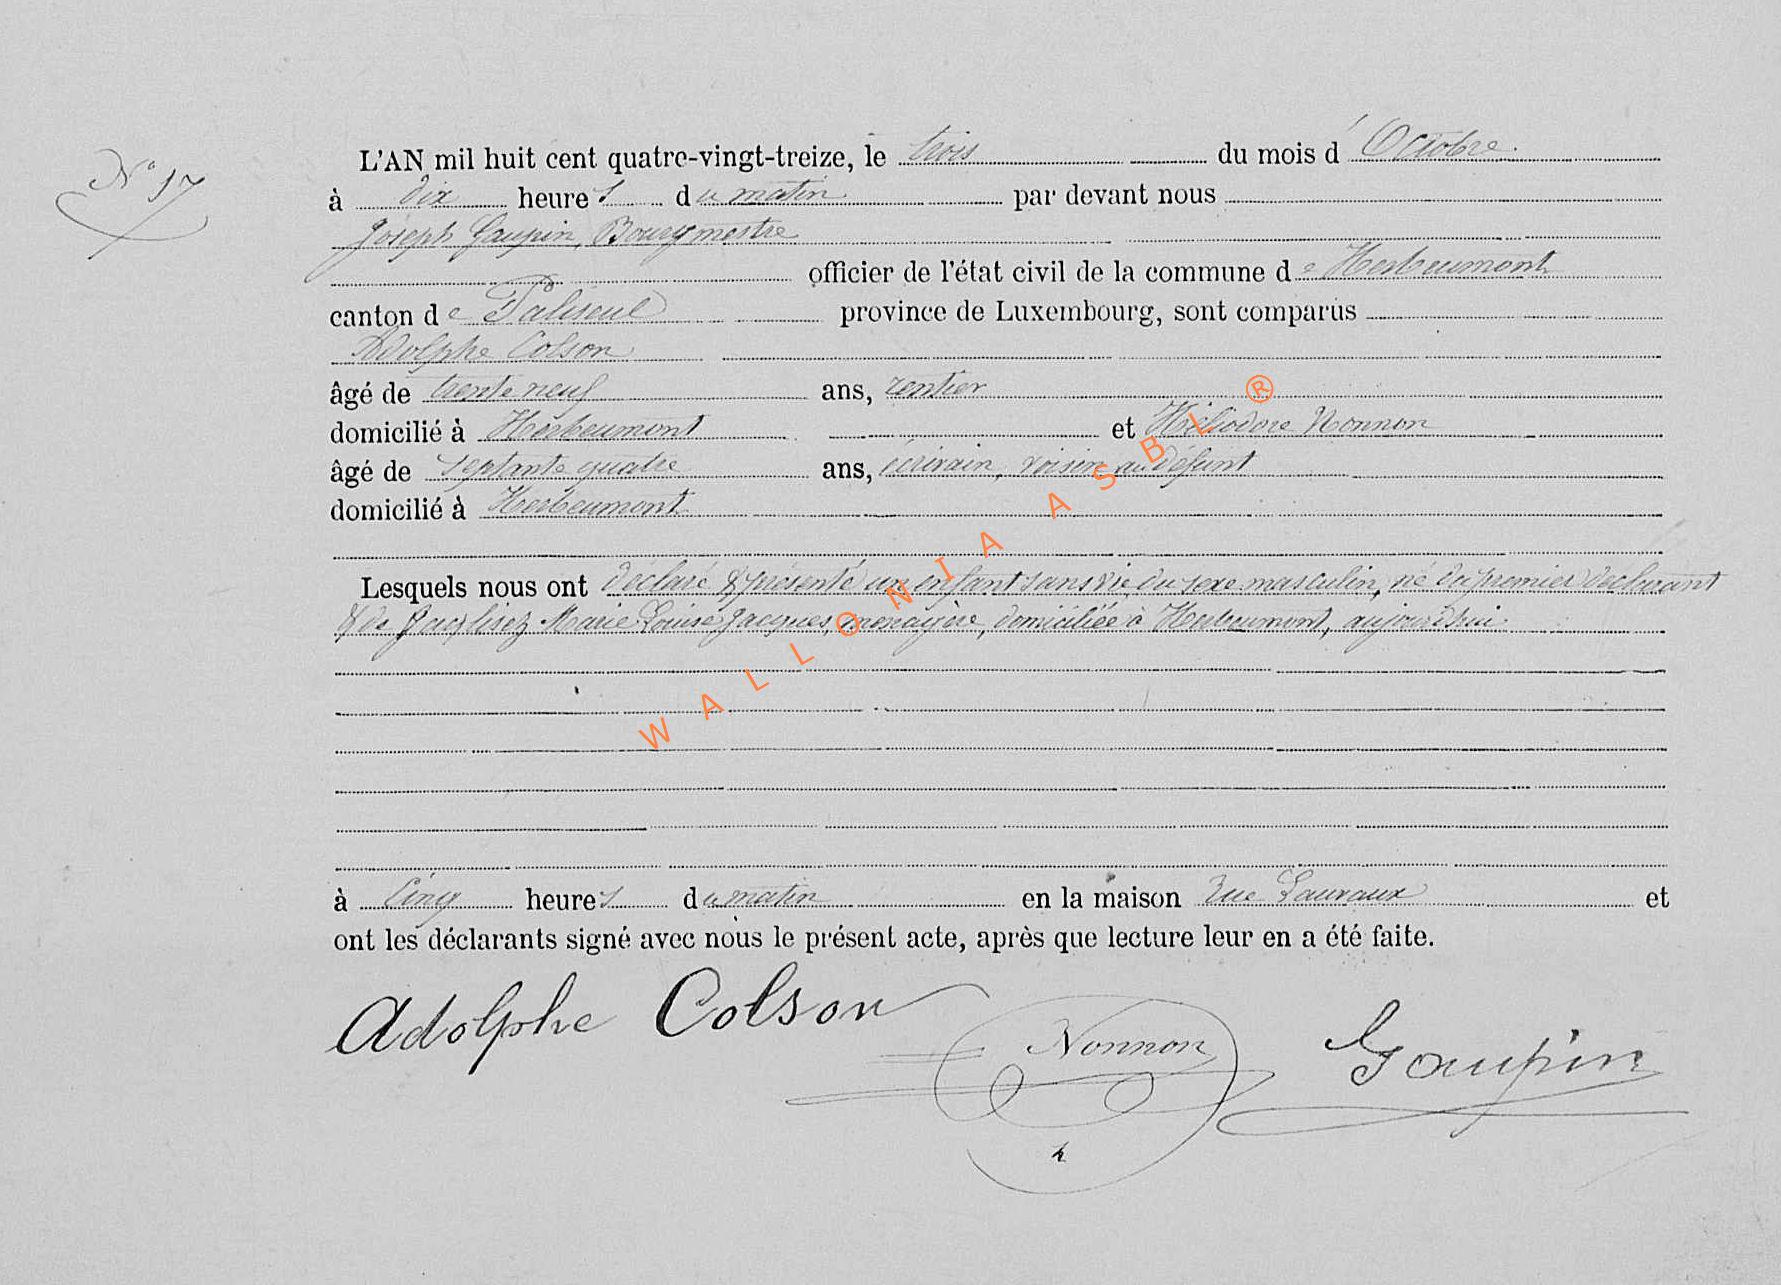 N° 17
L'AN mil huit cent quatre-vingt-treize, le trois du mois d'Octobre.
à dix heures du matin par devant nous
Joseph Gaupin, Bourgmestre
officier de l'état civil de la commune de Herbeumont
canton de Paliseul province de Luxembourg, sont comparus
Adolphe Colson
âgé de trente neuf ans, rentier
domicilié à Herbeumont et Héliodore Nonnon
âgé de septante quatre ans, écrivain, voisin au défunt
domicilié à Herbeumont
Lesquels nous ont déclaré & présenté un enfant sans vie, du sexe masculin, né du premier déclarant
& de Marie Louise Jacques, menagère, domiciliée à Herbeumont, aujourd'hui
à Cinq heures du matin en la maison rue Lauvaux et
ont les déclarants signé avec nous le présent acte, après que lecture leur en a été faite.
Adolphe Colson
Nonnon
Gaupin
WALLONIA ASBL ®